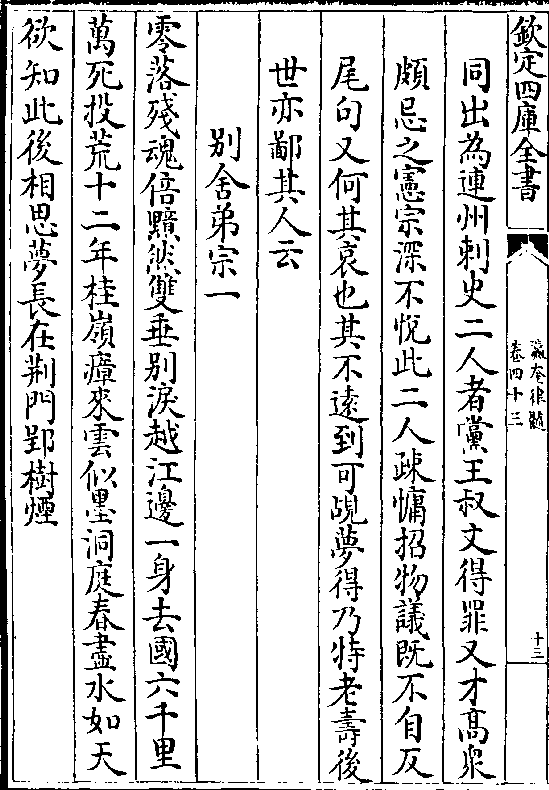 欽定四庫全書
瀛奎律髓
卷四十三
十三
同出為連州刺史二人者黨王叔文得罪又才高衆
頗忌之憲宗深不悅此二人疎慵招物議既不自反
尾句又何其哀也其不遠到可覘夢得乃特老壽後
世亦鄙其人云
别舍弟宗一
零落殘魂倍黯然雙垂别淚越江邊一身去國六千里
萬死投荒十二年桂嶺瘴來雲似墨洞庭春盡水如天
欲知此後相思夢長在荆門郢樹煙